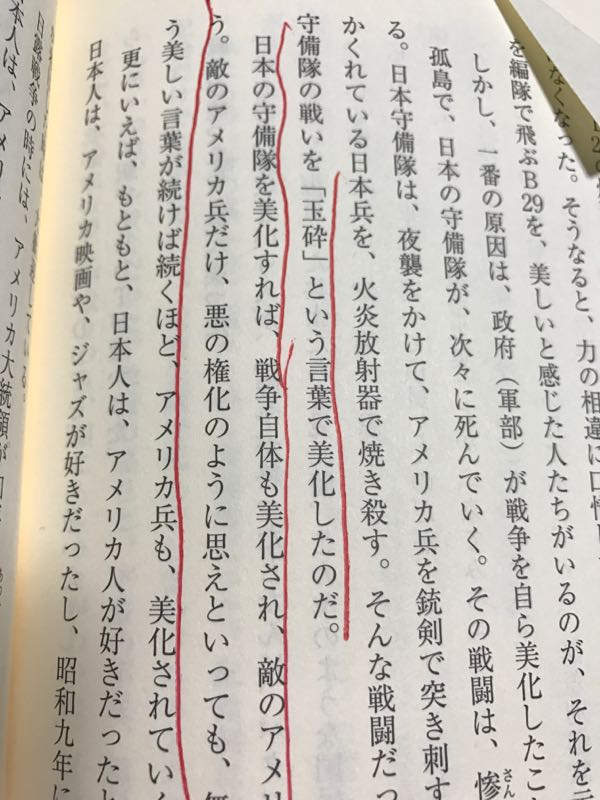 なくなった。そうなると、力の相違に口惜し
を編隊で飛ぶB29を、美しいと感じた人たちがいるのが、それを
しかし、一番の原因は、政府(軍部)が戦争を自ら美化したこ
孤島で、日本の守備隊が、次々に死んでいく。その戦闘は、惨
さん
る。日本守備隊は、夜襲をかけて、アメリカ兵を銃剣で突き刺す
かくれている日本兵を、火炎放射器で焼き殺す。そんな戦闘だっ
守備隊の戦いを「玉砕」という言葉で美化したのだ。
日本の守備隊を美化すれば、戦争自体も美化され、敵のアメリ
う。敵のアメリカ兵だけ、悪の権化のように思えといっても、無
う美しい言葉が続けば続くほど、アメリカ兵も、美化されていく
更にいえば、もともと、日本人は、アメリカ人が好きだったと
日本人は、アメリカ映画や、ジャズが好きだったし、昭和九年に
戦争の時には、アメリカ大統領が
本人は、アメリ